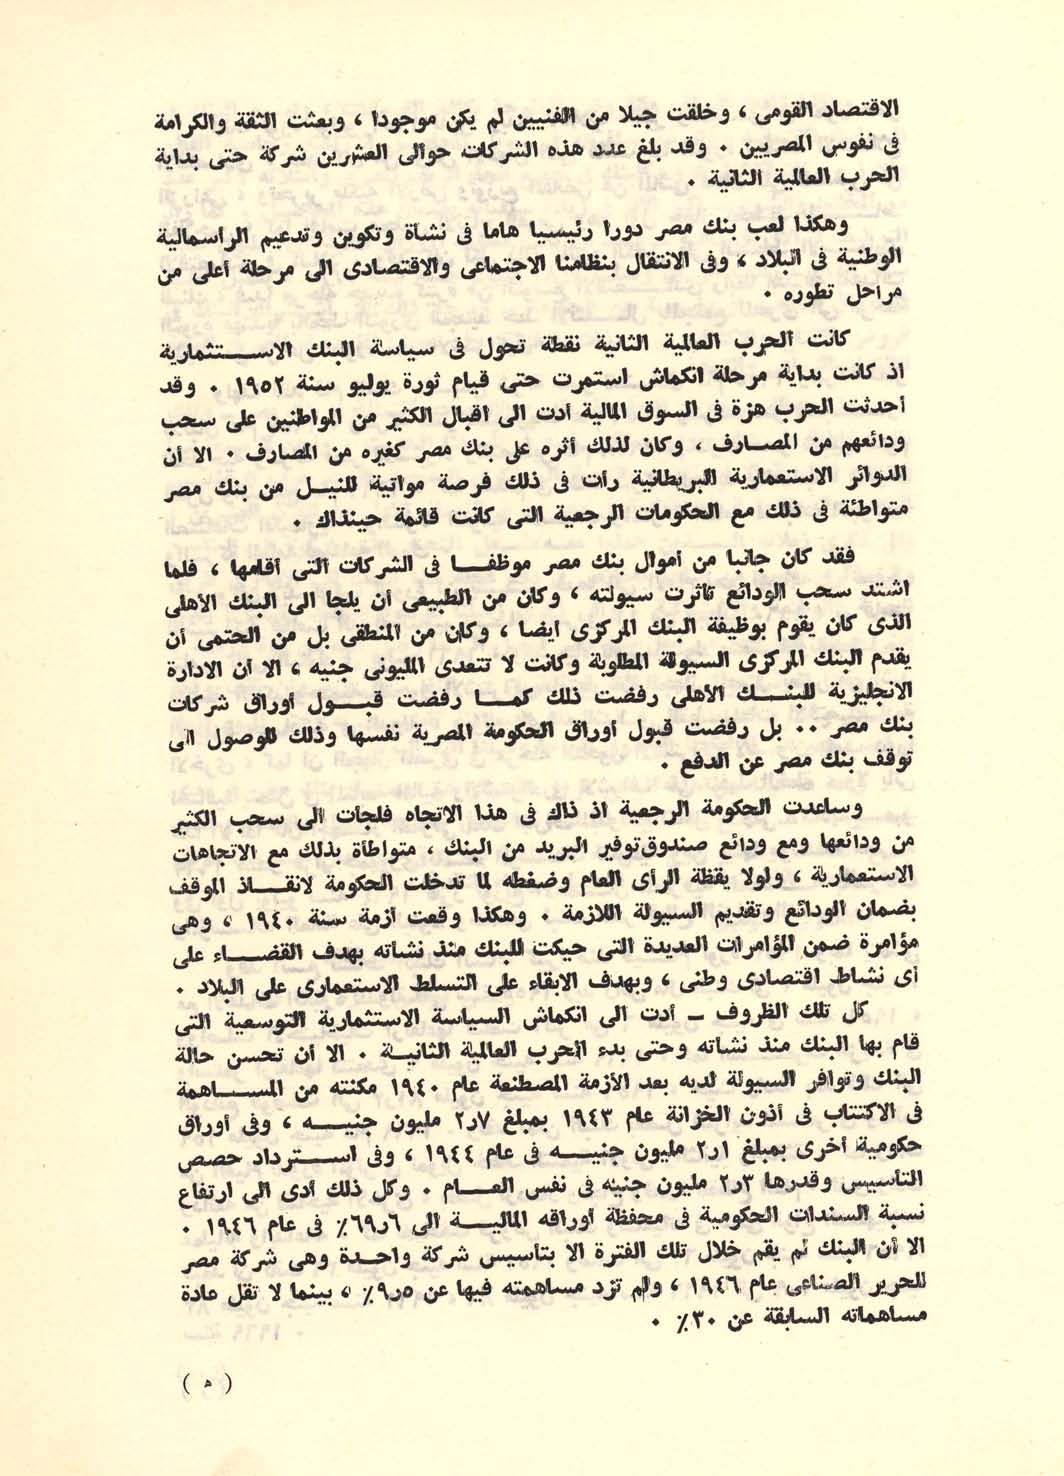 الاقتصاد القومى ، وخلقت جيلا من الفنيين لم يكن موجودا ، وبعثت الثقة والكرامة
فى نفوس المصريين ٠ وقد بلغ عدد هذه الشركات حوالى العشرين شركة حتى بداية
الحرب العالمية الثانية ٠
وهكذا لعب بنك مصر دورا رئيسيا هاما فى نشأة وتكوين وتدعيم الراسمالية
الوطنية فى البلاد ، وفى الانتقال بنظامنا الاجتماعى والاقتصادى الى مرحلة أعلى من
مراحل تطوره ٠
كانت الحرب العالمية الثانية نقطة تحول فى سياسة البنك الاستثمارية
اذ كانت بداية مرحلة انكماش استمرت حتى قيام ثورة يوليو سنة ١٩٥٢ ٠ وقد
أحدثت الحرب هزة فى السوق المالية أدت الى اقبال الكثير من المواطنين على سحب
ودائعهم من المصارف ، وكان لذلك أثره على بنك مصر كغيره من المصارف ٠ الا أن
الدوائر الاستعمارية البريطانية رأت فى ذلك فرصة مواتية للنيل من بنك مصر
متواطئة فى ذلك مع الحكومات الرجعية التى كانت قائمة حينذاك ٠
فقد كان جانبا من أموال بنك مصر موظفا فى الشركات التى أقامها ، فلما
اشتد سحب الودائع تأثرت سيولته ، وكان من الطبيعى أن يلجا الى البنك الأهلى
الذى كان يقوم بوظيفة البنك المركزى ايضا ، وكان من المنطقى بل من الحتمى أن
يقدم البنك المركزى السيولة المطلوبة وكانت لا تتعدى المليونى جنيه ، الا ان الادارة
الانجليزية للبنك الأهلى رفضت ذلك كما رفضت قبول أوراق شركات
بنك مصر ٠٠ بل رفضت قبول أوراق الحكومة المصرية نفسها وذلك للوصول الى
توقف بنك مصر عن الدفع ٠
وساعدت الحكومة الرجعية اذ ذاك فى هذا الاتجاه فلجات الى سحب الكثير
من ودائعها ومع ودائع صندوق توفير البريد من البنك ، متواطأة بذلك مع الاتجاهات
الاستعمارية ، ولولا يقظة الرأى العام وضغطه لما تدخلت الحكومة لانقاذ الموقف
بضمان الودائع وتقديم السيولة اللازمة ٠ وهكذا وقعت أزمة سنة ١٩٤٠ ، وهى
مؤامرة ضمن المؤامرات العديدة التى حيكت للبنك منذ نشأته بهدف القضاء على
أى نشاط اقتصادى وطنى ، وبهدف الابقاء على التسلط الاستعمارى على البلاد ٠
كل تلك الظروف – أدت الى انكماش السياسة الاستثمارية التوسعية التى
قام بها البنك منذ نشاته وحتى بدء الحرب العالمية الثانية ٠ الا أن تحسن حالة
البنك وتوافر السيولة لديه بعد الأزمة المصطنعة عام ١٩٤٠ مكنته من المساهمة
فى الاكتتاب فى أذون الخزانة عام ١٩٤٣ بمبلغ ٧ر٢ مليون جنيه ، وفى أوراق
حكومية أخرى بمبلغ ١ر٢ مليون جنيه فى عام ١٩٤٤ ، وفى استرداد حصص
التأسيس وقدرها ٣ر٢ مليون جنيه فى نفس العام ٠ وكل ذلك أدى الى ارتفاع
نسبة السندات الحكومية فى محفظة أوراقه المالية الى ٦ر٦٩٪ فى عام ١٩٤٦ ٠
الا أن البنك لم يقم خلال تلك الفترة الا بتأسيس شركة واحدة وهى شركة مصر
للحرير الصناعى عام ١٩٤٦ ، ولم تزد مساهمته فيها عن ٥ر٩٪ ، بينما لا تقل عادة
مساهماته السابقة عن ٣٠٪ ٠
( ه )